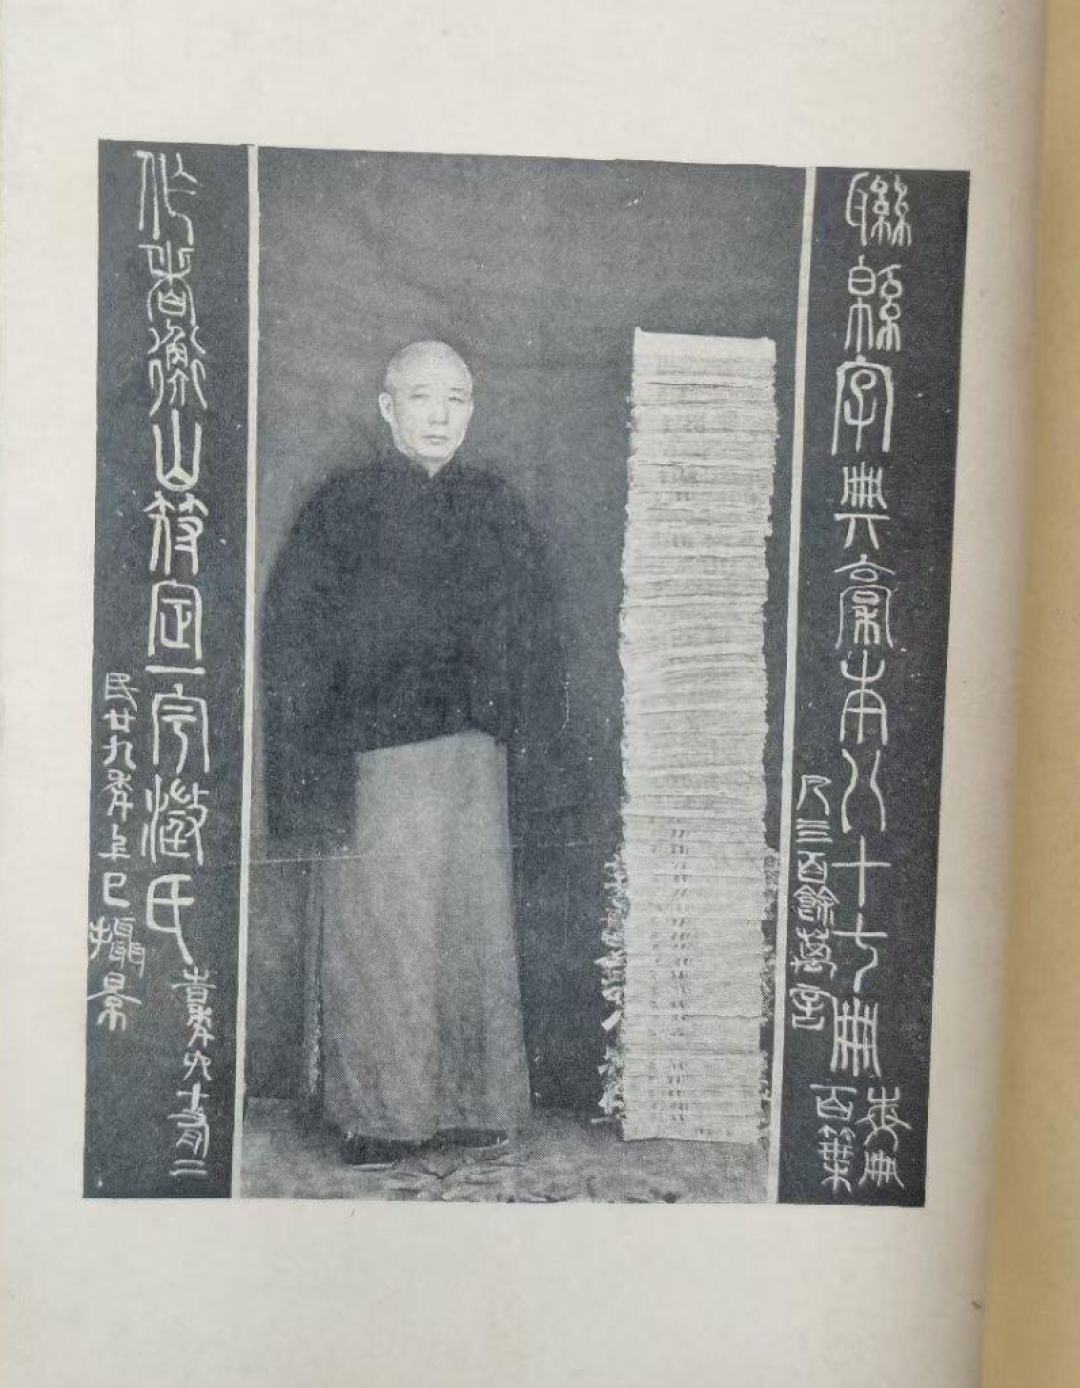 聯緜字典稾本八十七冊
每冊
百葉
凡三百餘萬言
作者衡山符定一宇澄氏
年六十有二
民廿九年上巳攝景